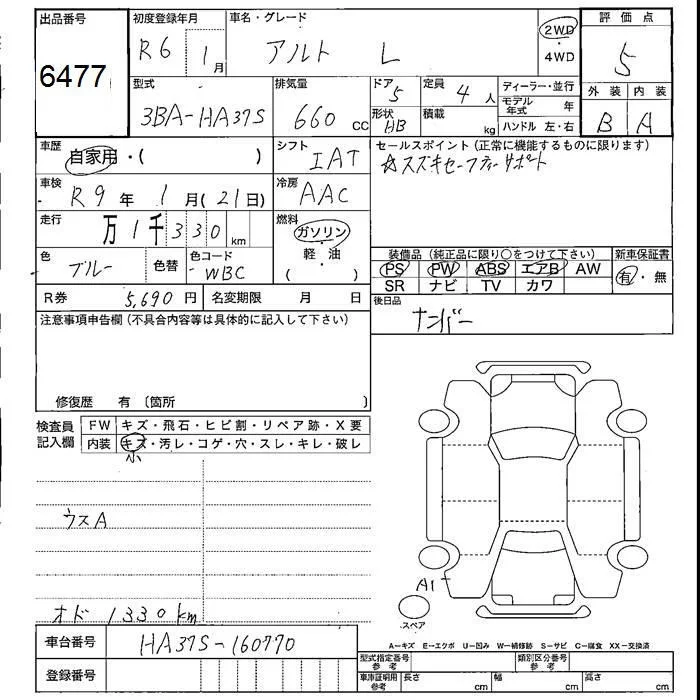 出品番号
6477
初度登録年月
R6 1月
車名・グレード
アルト L
2WD
・
4WD
評価点
5
外装 内装
B A
型式
3BA-HA37S
排気量
660 cc
ドア
5
形状
HB
定員
4 人
積載
kg
ディーラー・並行
モデル年式 年
ハンドル 左・右
車歴
自家用・( )
シフト
IAT
セールスポイント(正常に機能するものに限ります)
☆スズキセーフティーサポート
車検
R9 年 1 月(21日)
冷房
AAC
走行
万1千330 km
燃料
ガソリン
軽・油
( )
色
ブルー
色替
色コード
WBC
装備品(純正品に限り○をつけて下さい)
PS PW ABS エアB AW
SR ナビ TV カワ
新車保証書
有・無
R券 5,690 円
名変期限 月 日
後日品
ナンバー
注意事項申告欄(不具合内容等は具体的に記入して下さい)
修復歴 有〔箇所 〕
検査員記入欄
FW キズ・飛石・ヒビ割・リペア跡・X要
内装 キズ・汚レ・コゲ・穴・スレ・キレ・破レ
小
ウスA
オド 1330km
A1
スペア
車台番号 HA37S-160770
登録番号
A－キズ E－エクボ U－凹み W－補修跡 S－サビ C－腐食 XX－交換済
型式指定番号 参考
類別区分番号 参考
車庫証明用 参考
長さ cm
幅 cm
高さ cm